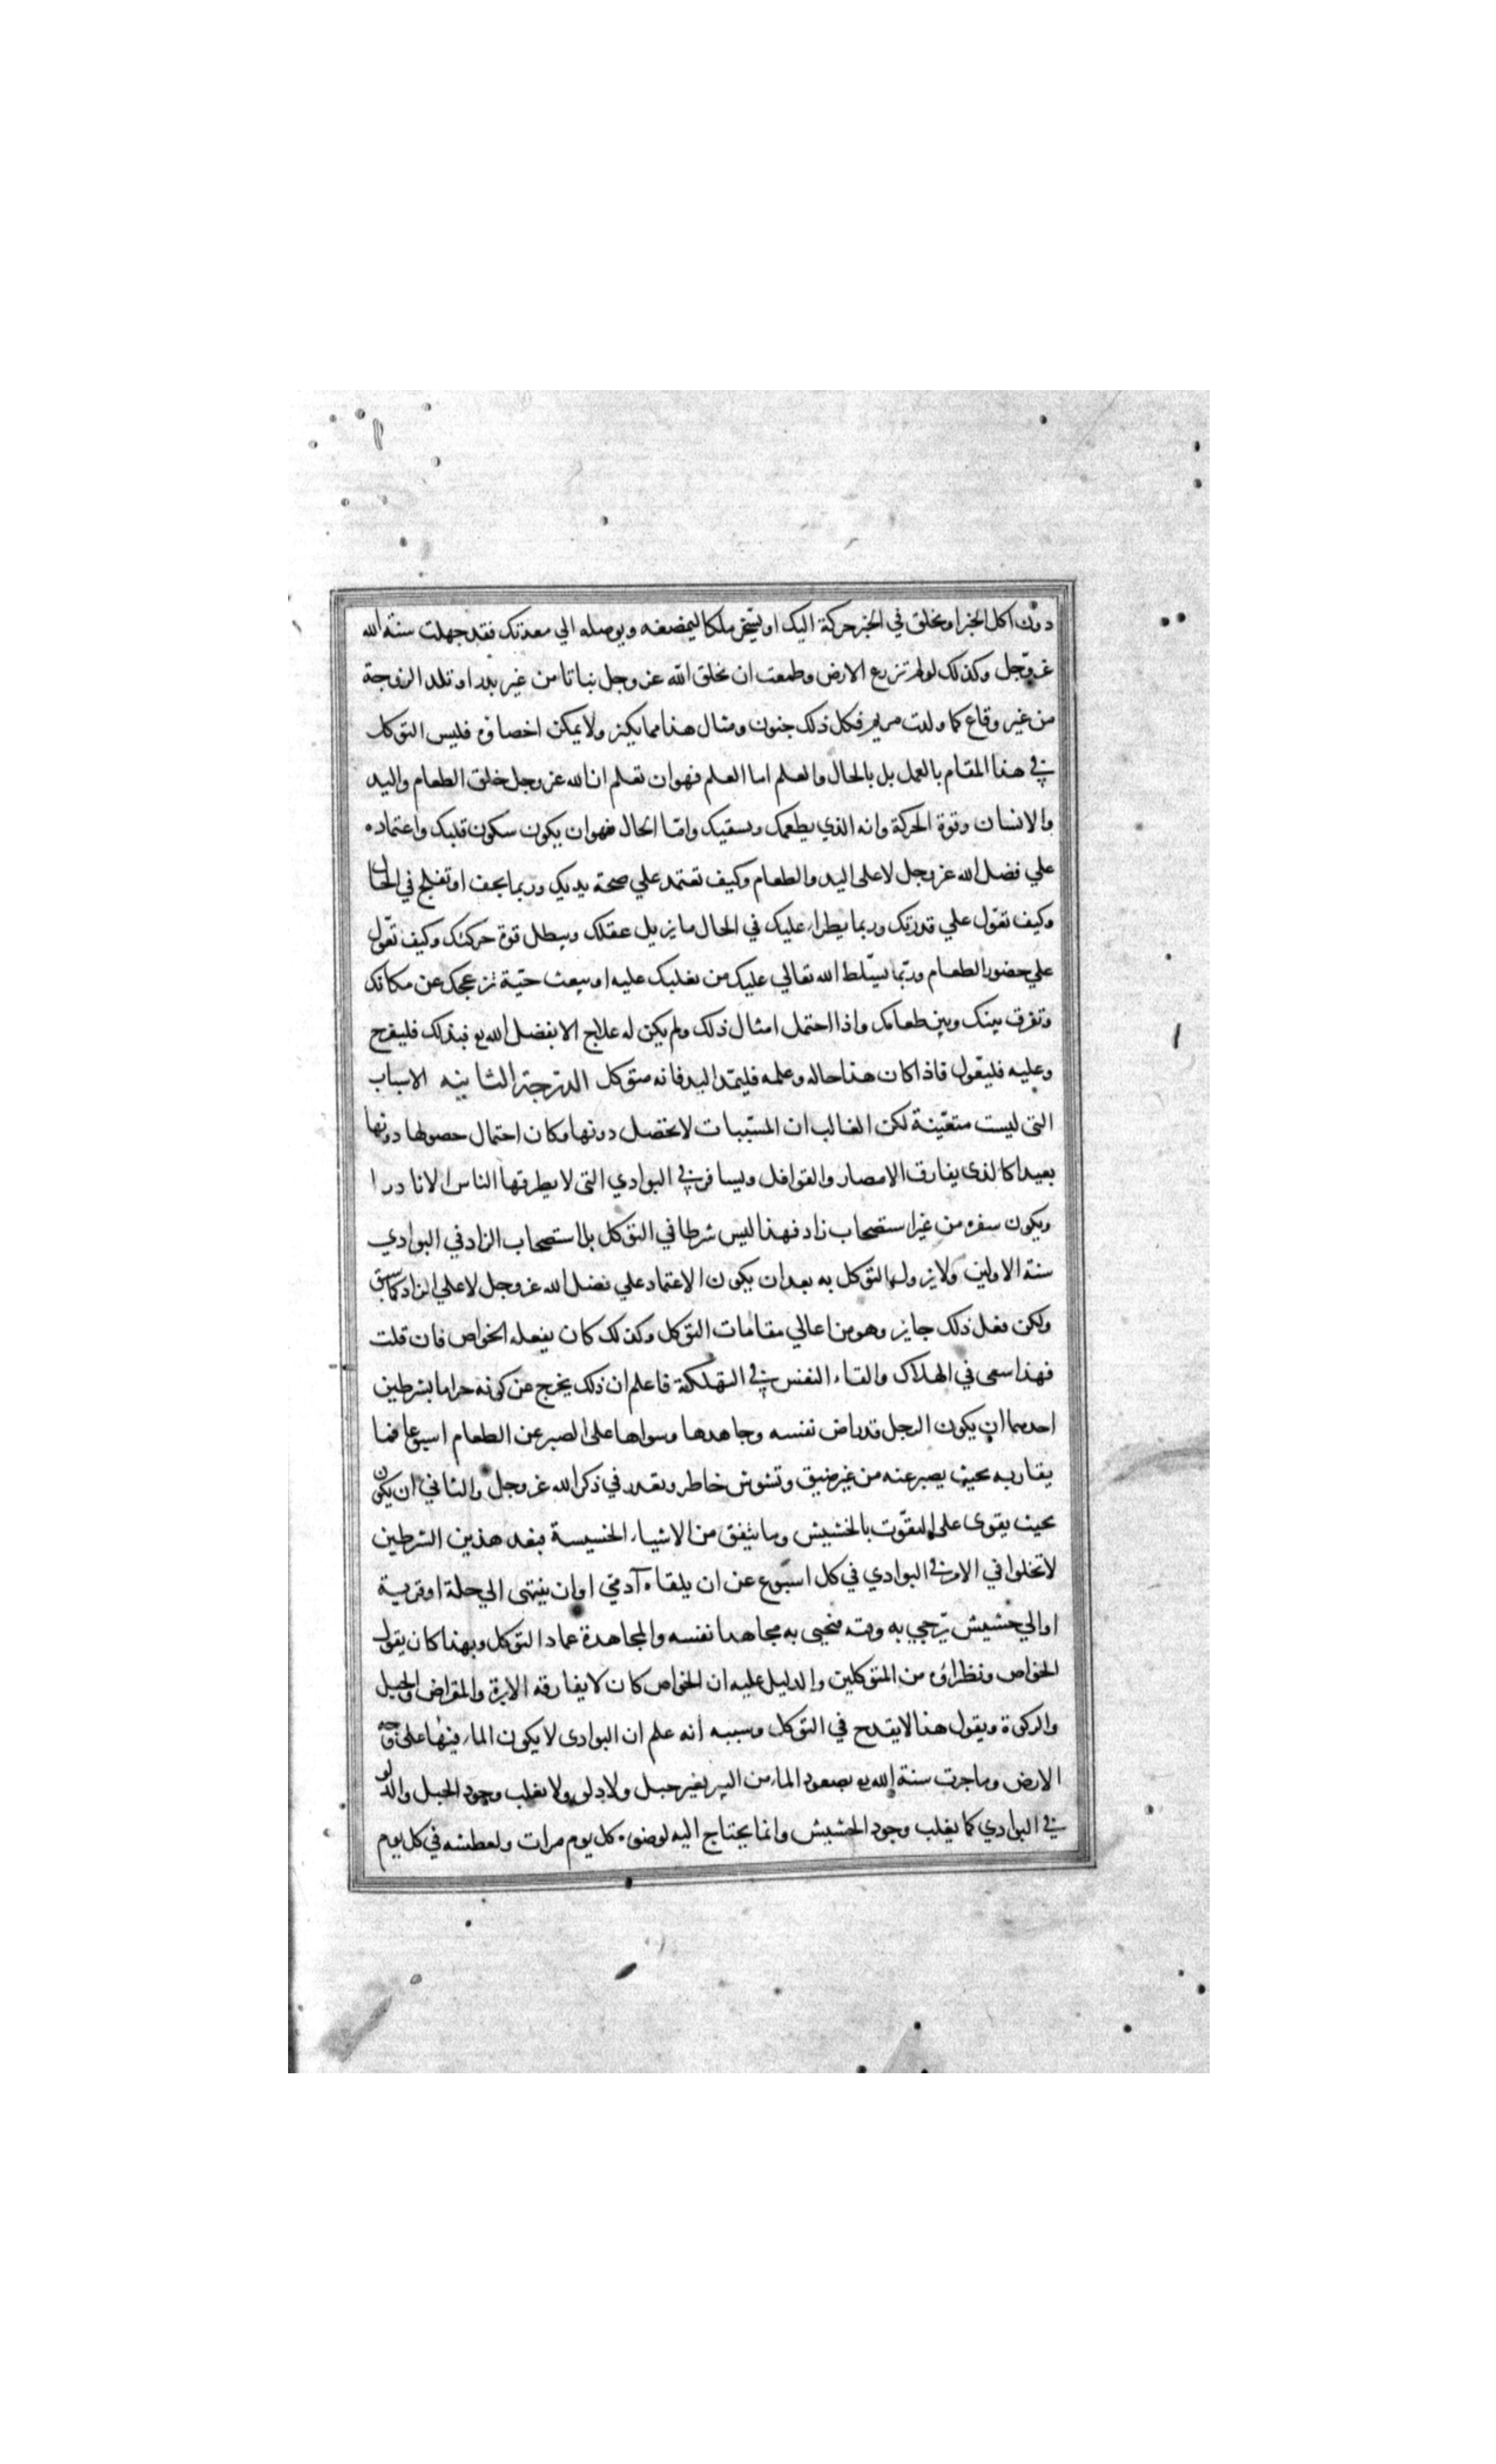 دون اكل الخبز او يخلق في الخبز حركة اليك او يسخر ملكا ليمضغه ويوصله الي معدتك فقد جهلت سنة الله
عز وجل وكذلك لو لم تزرع الارض وطمعت ان يخلق الله عز وجل نباتا من غير بذر او تلد الزوجة
من غير وقاع كما ولدت مريم فكل ذلك جنون ومثال هذا مما يكثر ولا يمكن احصاؤه فليس التوكل
في هذا المقام بالعمل بل بالحال والعلم اما العلم فهو ان تعلم ان الله عز وجل خلق الطعام واليد
والانسان وقوة الحركة وانه الذي يطعمك ويسقيك وامّا الحال فهو ان يكون سكون قلبك واعتماده
علي فضل الله عز وجل لا على اليد والطعام وكيف تعتمد علي صحة يديك وربما يجف او تفلج في الحال
وكيف تعوّل علي قدرتك وربما يطرا عليك في الحال ما يزيل عقلك ويبطل قوة حركتك وكيف تعوّل
علي حضور الطعام وربّما يسّلط الله تعالي عليك من يغلبك عليه او يبعث حيّة تزعجك عن مكانك
وتفرق بينك وبين طعامك واذا احتمل امثال ذلك ولم يكن له علاج الا بفضل الله تع فبذلك فليفرح
وعليه فليعّول فاذا كان هذا حاله وعلمه فليمّد اليد فانه متوكل الدرجة الثانيه الاسباب
التى ليست متعّينة لكن الغالب ان المسّببات لا تحصل دونها وكان احتمال حصولها دونها
بعيدا كالذى يفارق الامصار والقوافل ويسافر في البوادي التى لا يطرقها الناس الا نادرا
ويكون سفره من غير استصحاب زاد فهذا ليس شرطا في التوكل بل استصحاب الزاد في البوادي
سنة الاولين ولا يزول التوكل به بعد ان يكون الاعتماد علي فضل الله عز وجل لا علي الزاد كما سبق
ولكن فعل ذلك جايز وهو من اعالي مقامات التوكل وكذلك كان يفعله الخواص فان قلت
فهذا سعى في الهلاك والقاء النفس في التهلكة فاعلم ان ذلك يخرج عن كونه حراما بشرطين
احدهما ان يكون الرجل قد راض نفسه وجاهدها وسواها على الصبر عن الطعام اسبوعا فما
يقاربه بحيث يصبر عنه من غير ضيق وتشوش خاطر وتعذر في ذكر الله عز وجل والثاني ان يكون
بحيث يقوى على التقّوت بالحشيش وما يتفق من الاشياء الخسيسة فبعد هذين الشرطين
لا تخلوا في الامر في البوادي في كل اسبوع عن ان يلقاه آدمي او ان ينتهى الي حلة او قرية
او الي حشيش يزجي به وقته فيحيى به مجاهدا نفسه والمجاهدة عماد التوكل وبهذا كان يقول
الخواص ونظراؤه من المتوكلين والدليل عليه ان الخواص كان لا يفارقه الابرة والمقراض والحبل
والركوة ويقول هذا لا يقدح في التوكل وسببه انه علم ان البوادى لا يكون الماء فيها على وجه
الارض وما جرت سنة الله تع بصعود الماء من البير بغير حبل ولا دلو ولا يغلب وجود الحبل والدلو
في البوادي كما يغلب وجود الحشيش وانما يحتاج اليه لوضوءه كل يوم مرات ولعطشه في كل يوم